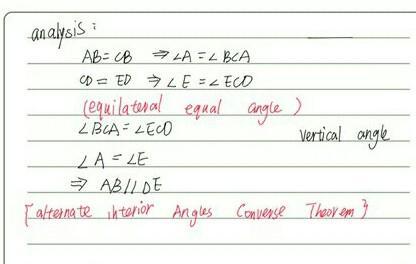 analysis:
AB = CB ⇒ ∠A = ∠BCA
CD = ED ⇒ ∠E = ∠ECD
(equilateral equal angle)
∠BCA = ∠ECD vertical angle
∠A = ∠E
⇒ AB // DE
[alternate interior Angles Converse Theorem}